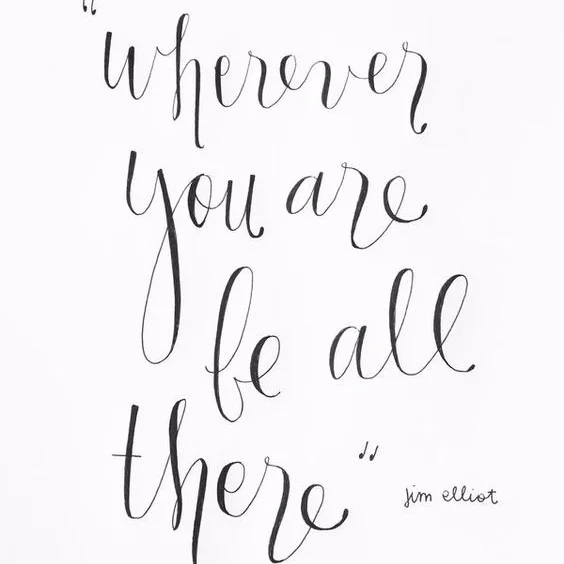 "wherever
you are
be all
there"
jim elliot